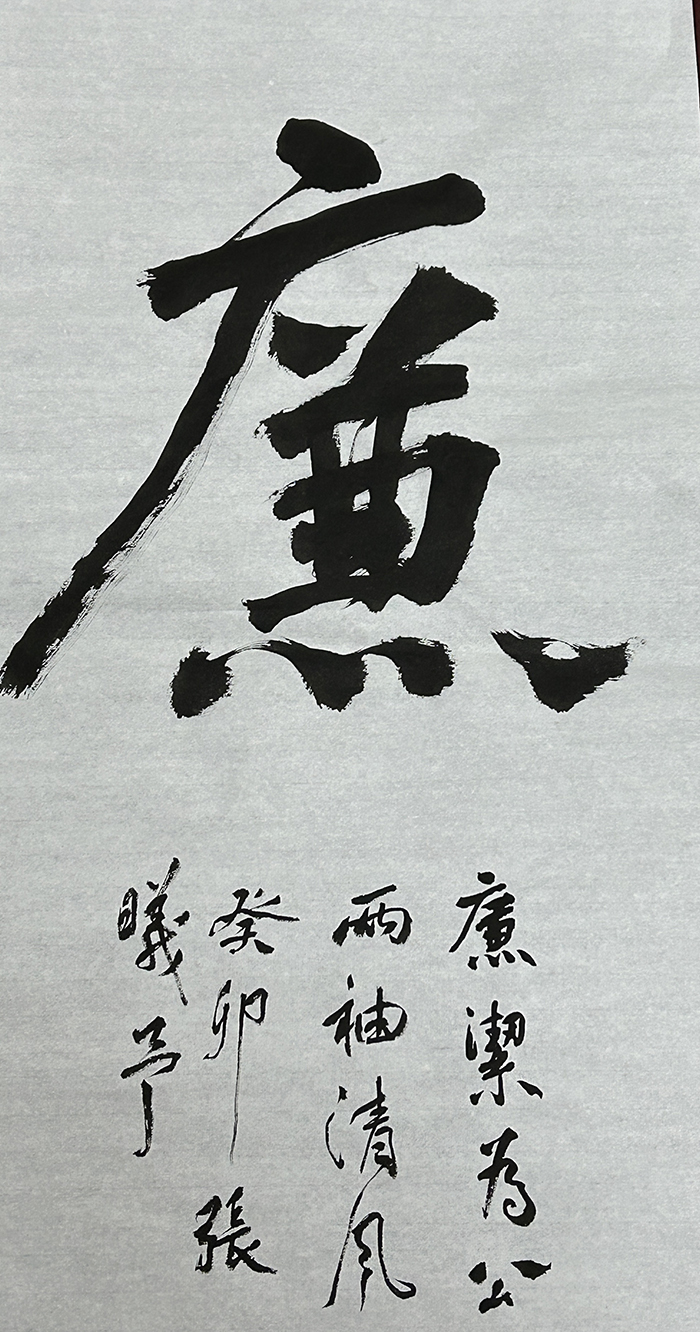 廉
廉潔為公
兩袖清風
癸卯張
曦予